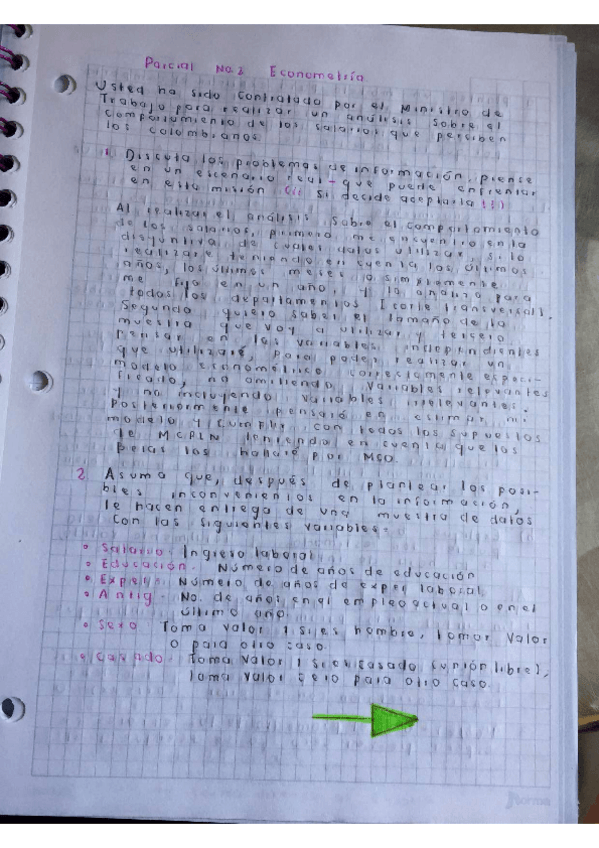 Parcial No. 2 Econometría
Usted ha sido contratado por el Ministro de
Trabajo para realizar un análisis sobre el
comportamiento de los salarios que perciben
los colombianos.
1. Discuta los problemas de información, piense
en un escenario real - que puede enfrentar
en esta misión ((( si decide aceptarla )))
Al realizar el análisis sobre el comportamiento
de los salarios, primero me encuentro en la
disyuntiva de cuales datos utilizar, si lo
realizare teniendo en cuenta los últimos
años, los últimos meses o simplemente
me fijo en un año, y lo analizo para
todos los departamentos (corte transversal).
Segundo quiero saber el tamaño de la
muestra que voy a utilizar, tercero
pensar en las variables independientes
que utilizaré, para poder realizar un
modelo econométrico correctamente especi-
ficado, no omitiendo variables relevantes
y no incluyendo variables irrelevantes.
Posteriormente pensaré en estimar mi
modelo y cumplir con todos los supuestos
de MCRLN teniendo en cuenta que los
betas los hallaré por MCO.
2 Asuma que, después de plantear los posi-
bles inconvenientes en la información,
le hacen entrega de una muestra de datos
con las siguientes variables:
• Salario: Ingreso laboral
• Educación. Número de años de educación
• Exper: Número de años de exper laboral
• Antig. No. de años en el empleo actual o en el
último año.
• Sexo Toma valor 1 si es hombre, tomar valor
0 para otro caso.
• Casado Toma valor 1 si es casado (unión libre),
toma valor cero para otro caso.
norma